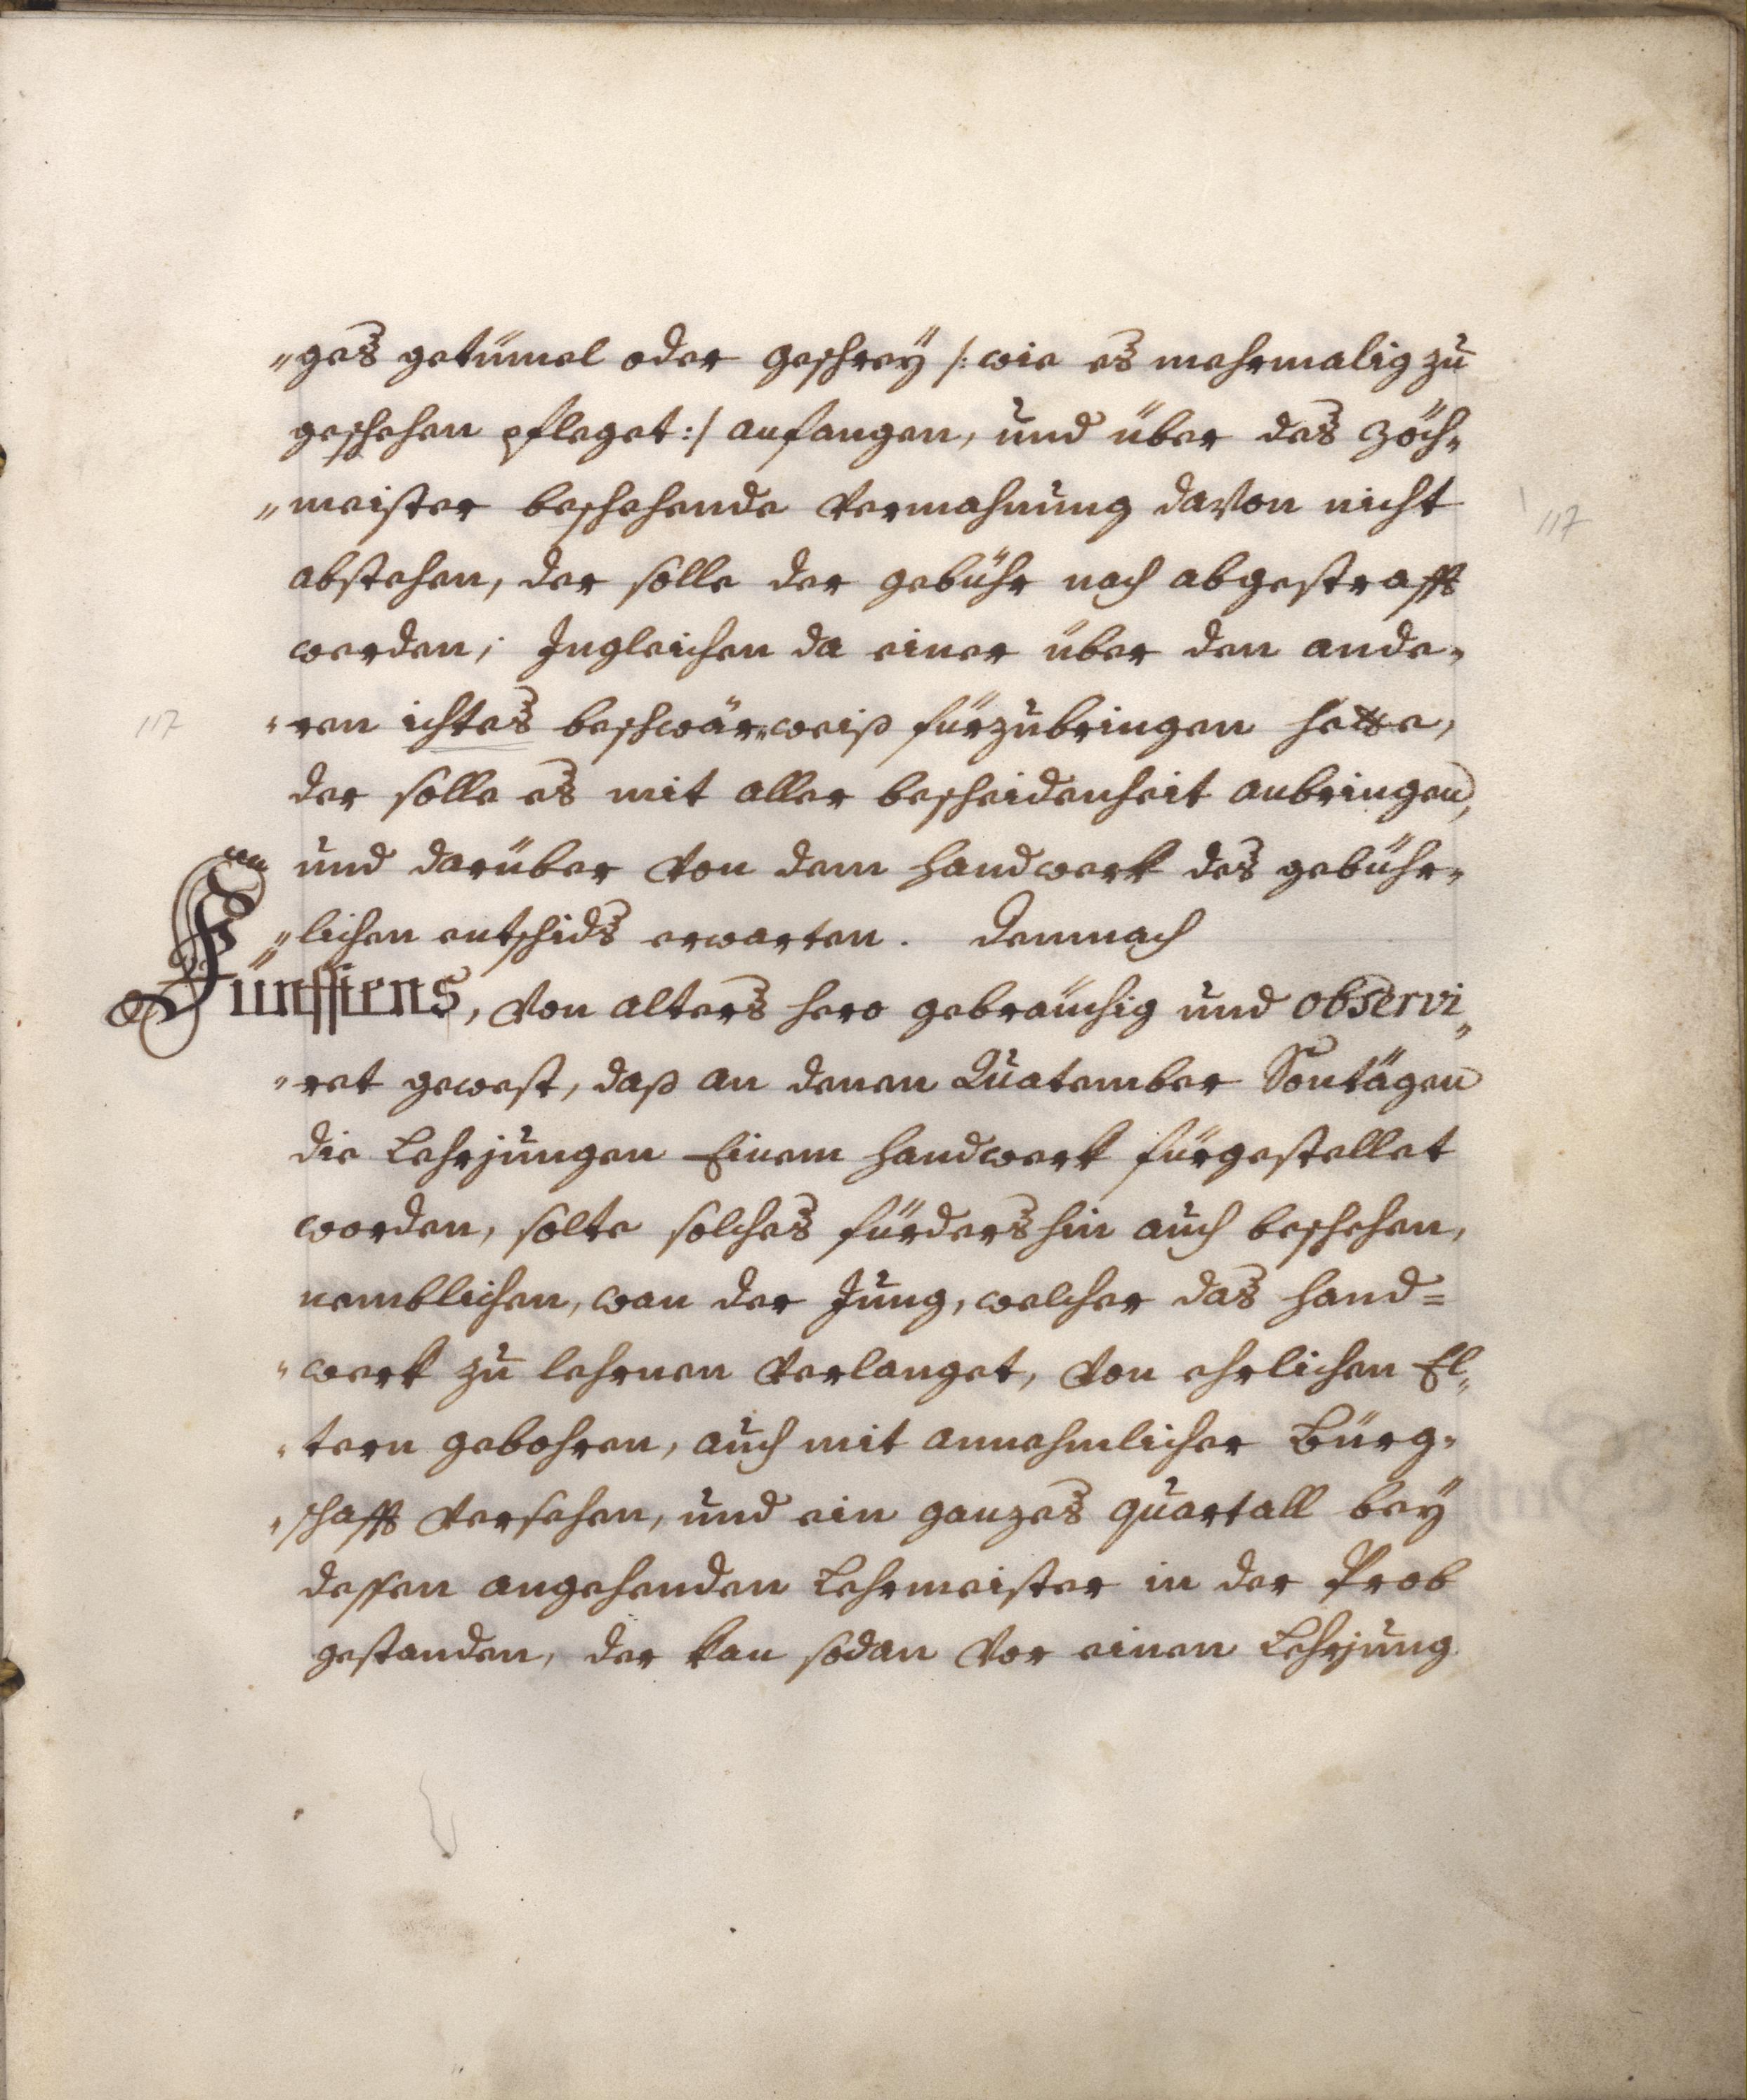 „ges getümel oder geschreÿ /: wie es mehrmalig zu
geschehen pfleget :/ anfangen, und über des Zöch„
„meister beschehende Vermahnung davon nicht
abstehen, der solle der gebühr nach abgestrafft
werden; Ingleichen da einer über den ande„
„ren ichtes beschwär„weiß fürzubringen hette,
der solle es mit aller bescheidenheit anbringen,
und darüber von dem Handwerk des gebühr„
„lichen entschids erwarten. Demnach
Fünfftens, Von alters hero gebräuchig und observi„
„ret gewest, daß an denen Quatember Sontägen
die Lehrjungen Einem Handwerk fürgestellet
worden, solte solches fürdershin auch beschehen,
nemblichen, wan der Jung, welcher das Hand=
„werk zu lehrnen Verlanget, Von ehrlichen El„
„tern gebohren, auch mit annehmlicher Bürg„
„schafft Versehen, und ein ganzes quartall beÿ
dessen angehenden Lehrmeister in der Prob
gestanden, der kan sodan Vor einen Lehrjung
117
117